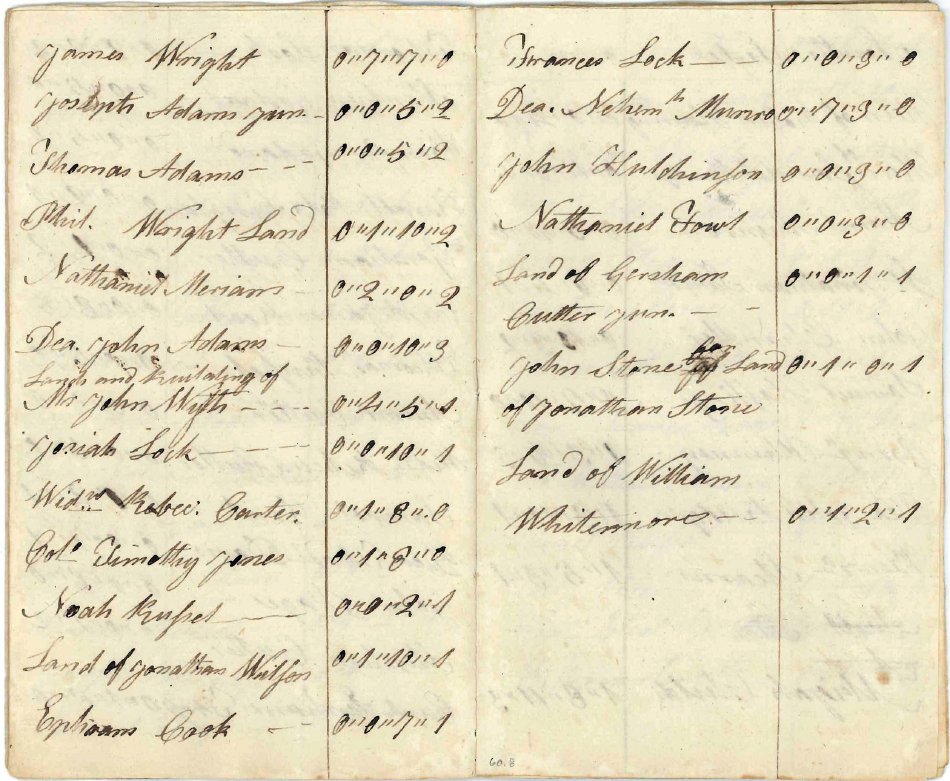 James Wright 0"7"7"0
Joseph Adams Jun. - 0"0"5"2
Thomas Adams - - 0"0"5"2
Phil. Wright Land 0"1"10"2
Nathaniel Meriam - 0"2"0"2
Dea. John Adams - 0"0"10"3
Lands and Buildings of
Mr John Wyth - - - 0"4"5"1
Josiah Lock - - - 0"0"10"1
Widw. Rebec. Carter. 0"1"8"0
Colo Timothy Jones 0"1"8"0
Noah Russel 0"0"2"1
Land of Jonathan Wilson 0"1"10"1
Ephraam Cook - - 0"0"7"1
Frances Lock - 0"0"3"0
Dea. Nehemth Munro 0"7"3"0
John Hutchinson 0"0"3"0
Nathaniel Fowl 0"0"3"0
Land of Gersham 0"0"1"1
Cutter Jun. - - -
John Stone for Land 0"1"0"1
of Jonathan Stone
Land of William
Whitemore - - 0"1"2"1
60.8